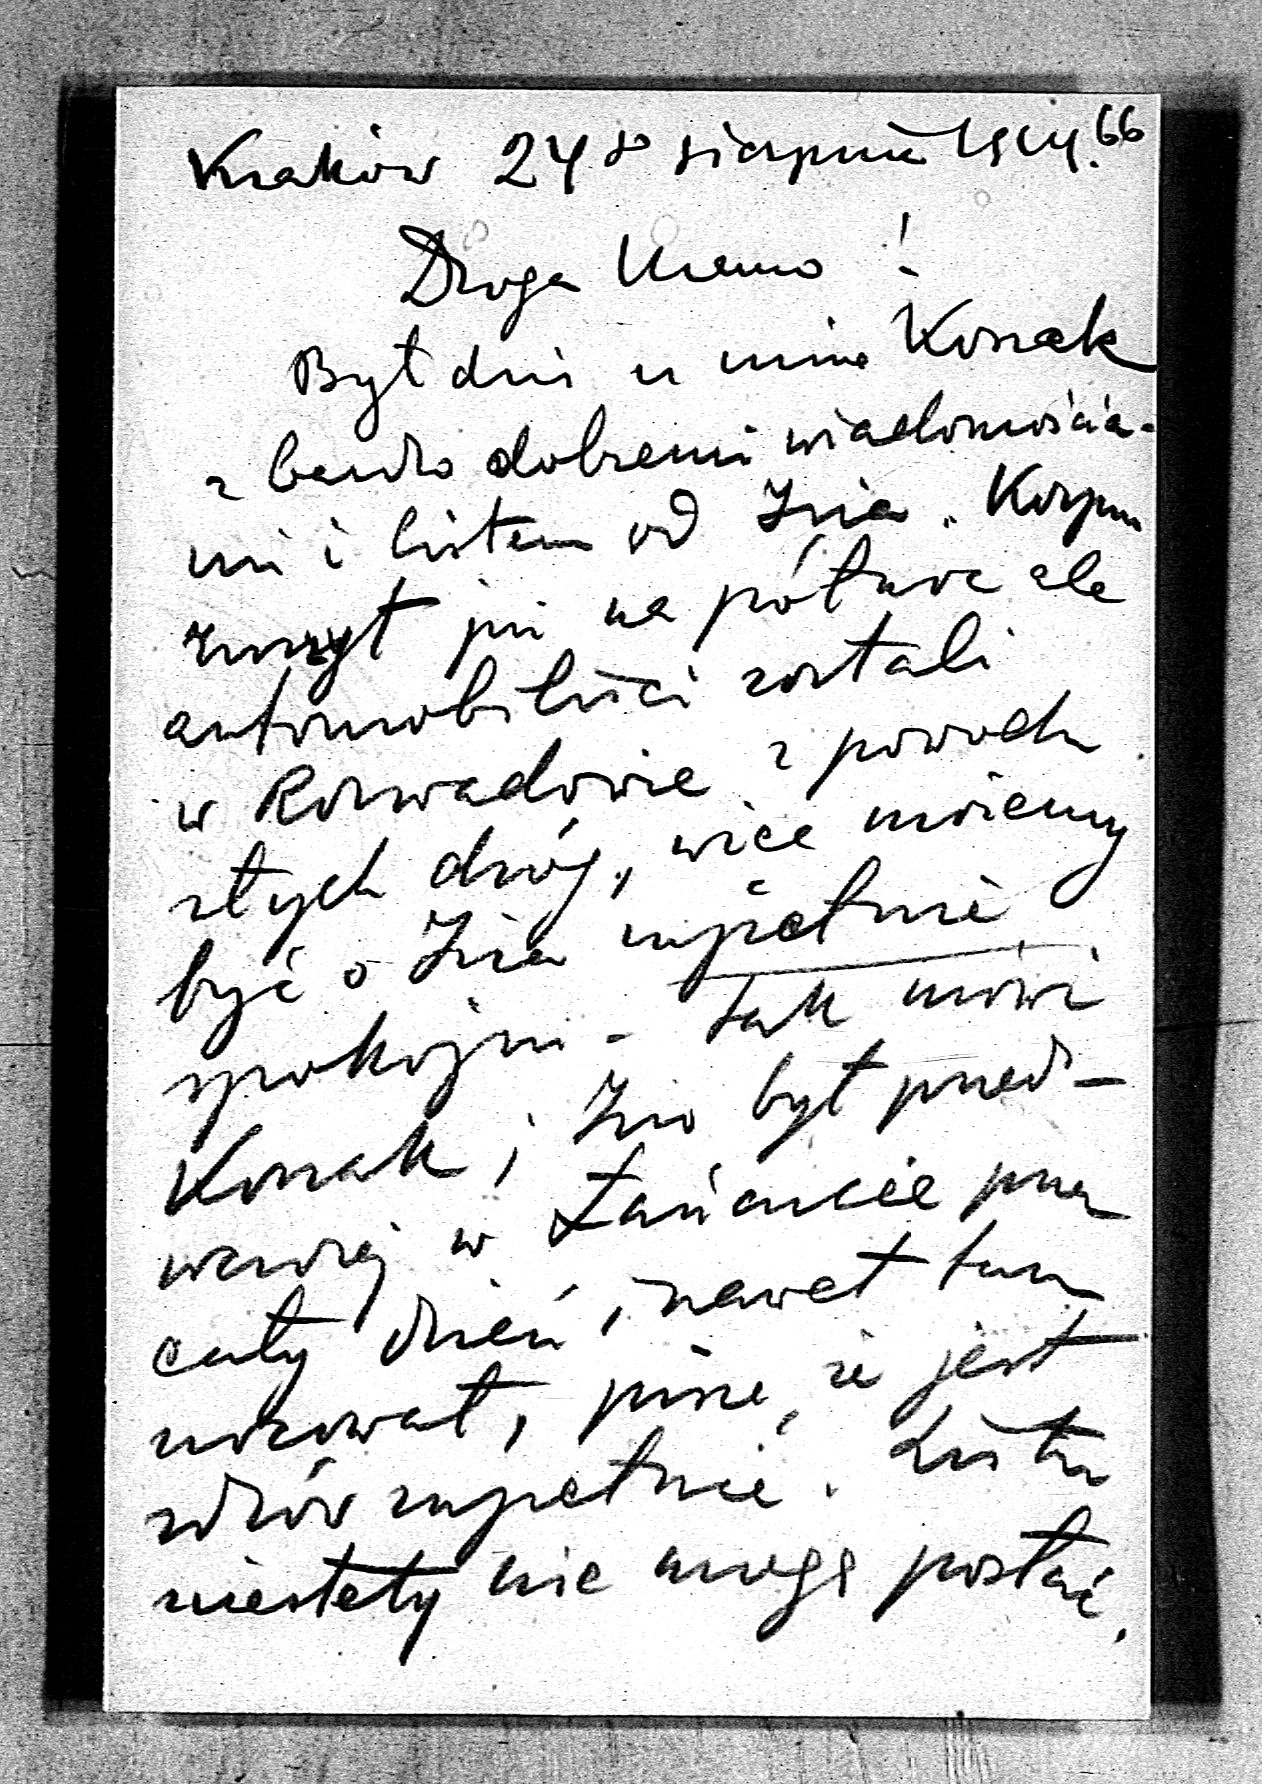 66
Kraków 24go sierpnia 1914.
Droga Mamo!
Był dziś u mnie Kossak
z bardzo dobremi wiadomościa-
mi i listem od Zia. Korpus
ruszył już na północ ale
automobiliści zostali
w Rozwadowie z powodu
złych dróg, więc możemy
być o Zia zupełnie
spokojni - tak mówi
Kossak, Zio był przed-
wczoraj w Łańcucie przez
cały dzień, nawet tam
nocował, pisze, że jest
zdrów zupełnie. Listu
niestety nie mogę posłać,